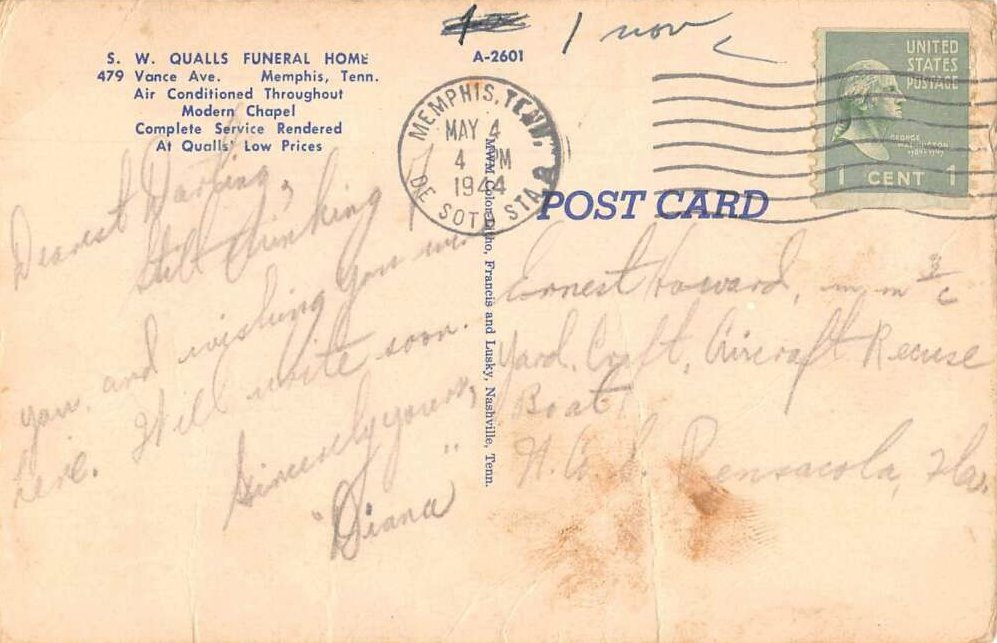 1 nov
A-2601
S. W. QUALLS FUNERAL HOME
479 Vance Ave. Memphis, Tenn.
Air Conditioned Throughout
Modern Chapel
Complete Service Rendered
At Qualls' Low Prices
MEMPHIS, TENN. 2
MAY 4
4 PM
1944
DE SOTO STA.
UNITED
STATES
POSTAGE
GEORGE
WASHINGTON
1789-1797
1 CENT 1
POST CARD
MWM Color-Litho, Francis and Lusky, Nashville, Tenn.
Dearest Darling,
Still thinking of
you, and wishing you were
here. Will write soon.
Sincerely yours,
"Diana"
Ernest Howard, m.m 3/c
Yard. Craft, Aircraft Recuse
Boat
N.A.S. Pensacola, Fla.